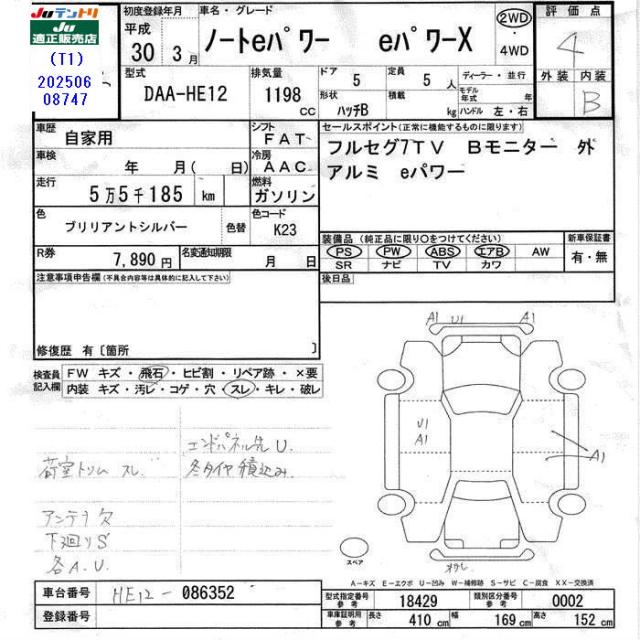 Juテントリ
Ju
適正販売店
(T1)
202506
08747
初度登録年月
平成
30 3月
車名・グレード
ノートeパワー eパワーX
2WD
・
4WD
評価点
4
外装 内装
B
型式
DAA-HE12
排気量
1198
CC
ドア 5
形状 ハッチB
定員 5 人
積載 kg
ディーラー・並行
モデル年式 年
ハンドル 左・右
車歴 自家用
シフト FAT
車検 年 月( 日)
冷房 AAC
走行 5万5千185 km
燃料 ガソリン
色 ブリリアントシルバー 色替
色コード K23
R券 7,890円
名変通知期限 月 日
セールスポイント(正常に機能するものに限ります)
フルセグ7TV Bモニター 外
アルミ eパワー
装備品(純正品に限り○をつけてください)
PS・PW・ABS・エアB・AW
SR・ナビ・TV・カワ
新車保証書
有・無
後日品
注意事項申告欄(不具合内容等は具体的に記入して下さい)
修復歴 有〔箇所 〕
検査員
記入欄
FW キズ・飛石・ヒビ割・リペア跡・×要
内装 キズ・汚レ・コゲ・穴・スレ・キレ・破レ
エンドパネル先 U.
荷室トリム スレ
冬タイヤ積込み
アンテナ欠
下廻りS
各A.U.
A1 U1 A1
U1
A1
A1
スペア
A-キズ E-エクボ U-凹み W-補修跡 S-サビ C-腐食 XX-交換済
車台番号 HE12-086352
登録番号
型式指定番号
参考
18429
類別区分番号
参考
0002
車車証明用
参考
長さ 410 cm 幅 169 cm 高さ 152 cm